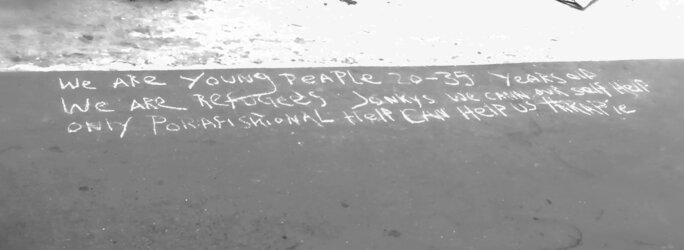 We ARe YOUNg PeAPLe 20-35 YeARS OLD
We ARe ReFUgees JONKYS We CANN OUR SeLF HeLP
ONLY PORAFISHIONAL HeLP CAN HeLP US THRAPIe